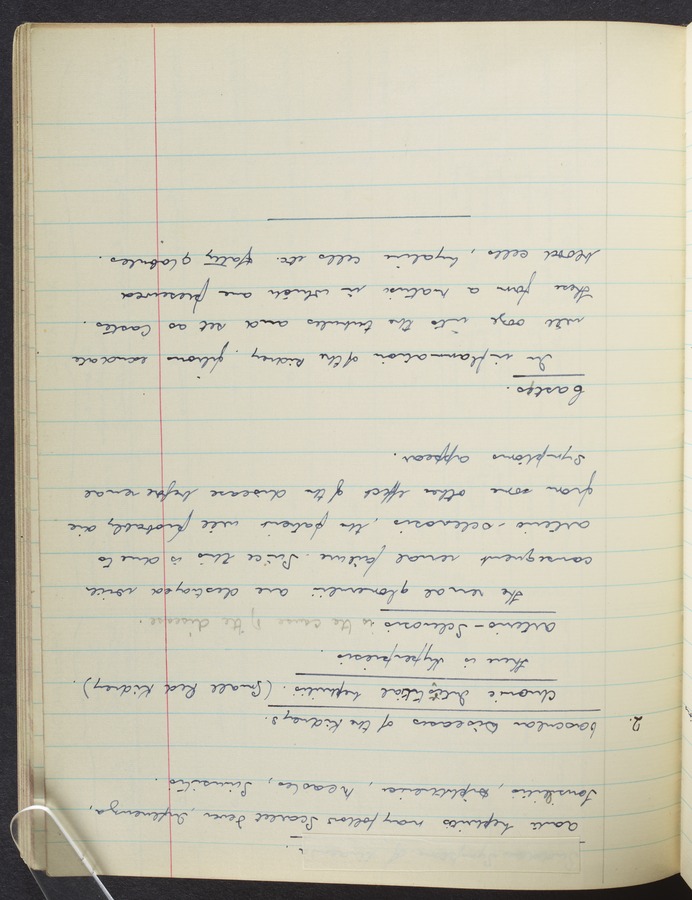 Acute Nephritis may follow Scarlet Fever, Influenza,
Tonsilitis, Diphtheria, Measles, Sinusitis.
2. Vascular Diseases of the Kidneys.
Chronic Interstitial Nephritis. (Small Red Kidney).
There is Hyperpiesis.
Arterio-Sclerosis is the cause of the disease.
The renal glomerulii are destroyed with
consequent renal failure. Since this is due to
arterio-sclerosis, the patient will probably die
from some other effect of the disease before renal
symptoms appear.
Casts.
In inflammation of the kidney, fibrous exudate
will ooze into the tubules and set as Casts.
These form a matrix in which are preserved
blood cells, hyaline cells etc. fatty globules.